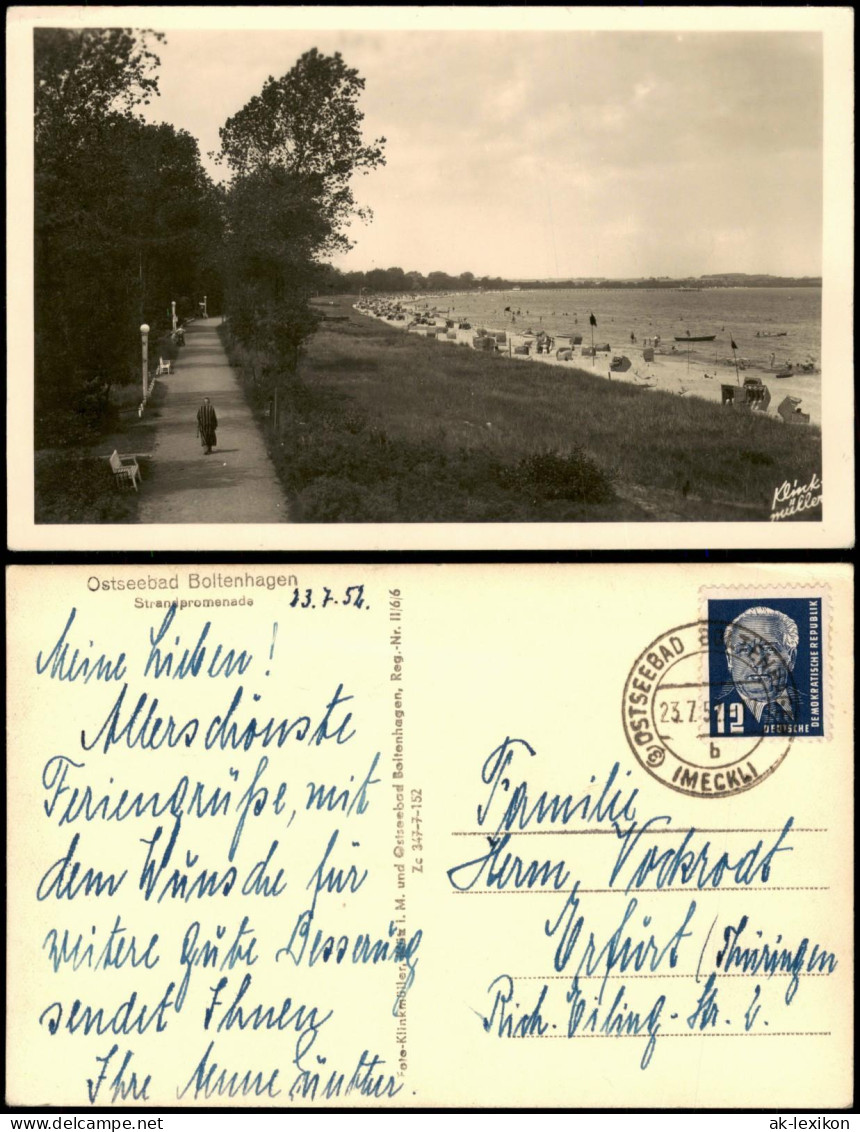 Klink-
müller
Ostseebad Boltenhagen
Strandpromenade
23.7.52.
Meine Lieben!
Allerschönste
Feriengrüße, mit
dem Wunsche für
weitere gute Besserung
sendet Ihnen
Ihre
Foto-Klinkmüller, i. M. und Ostseebad Boltenhagen, Reg.-Nr. II/6/6
Zc 347-7-152
OSTSEEBAD
23.7.52
b
(MECKL)
12
DEUTSCHE DEMOKRATISCHE REPUBLIK
Familie
Herm. Vockrodt
Erfurt (Thüringen
Rich. Eiling-Str. 2.
ak-lexikon
ak-lexikon.de